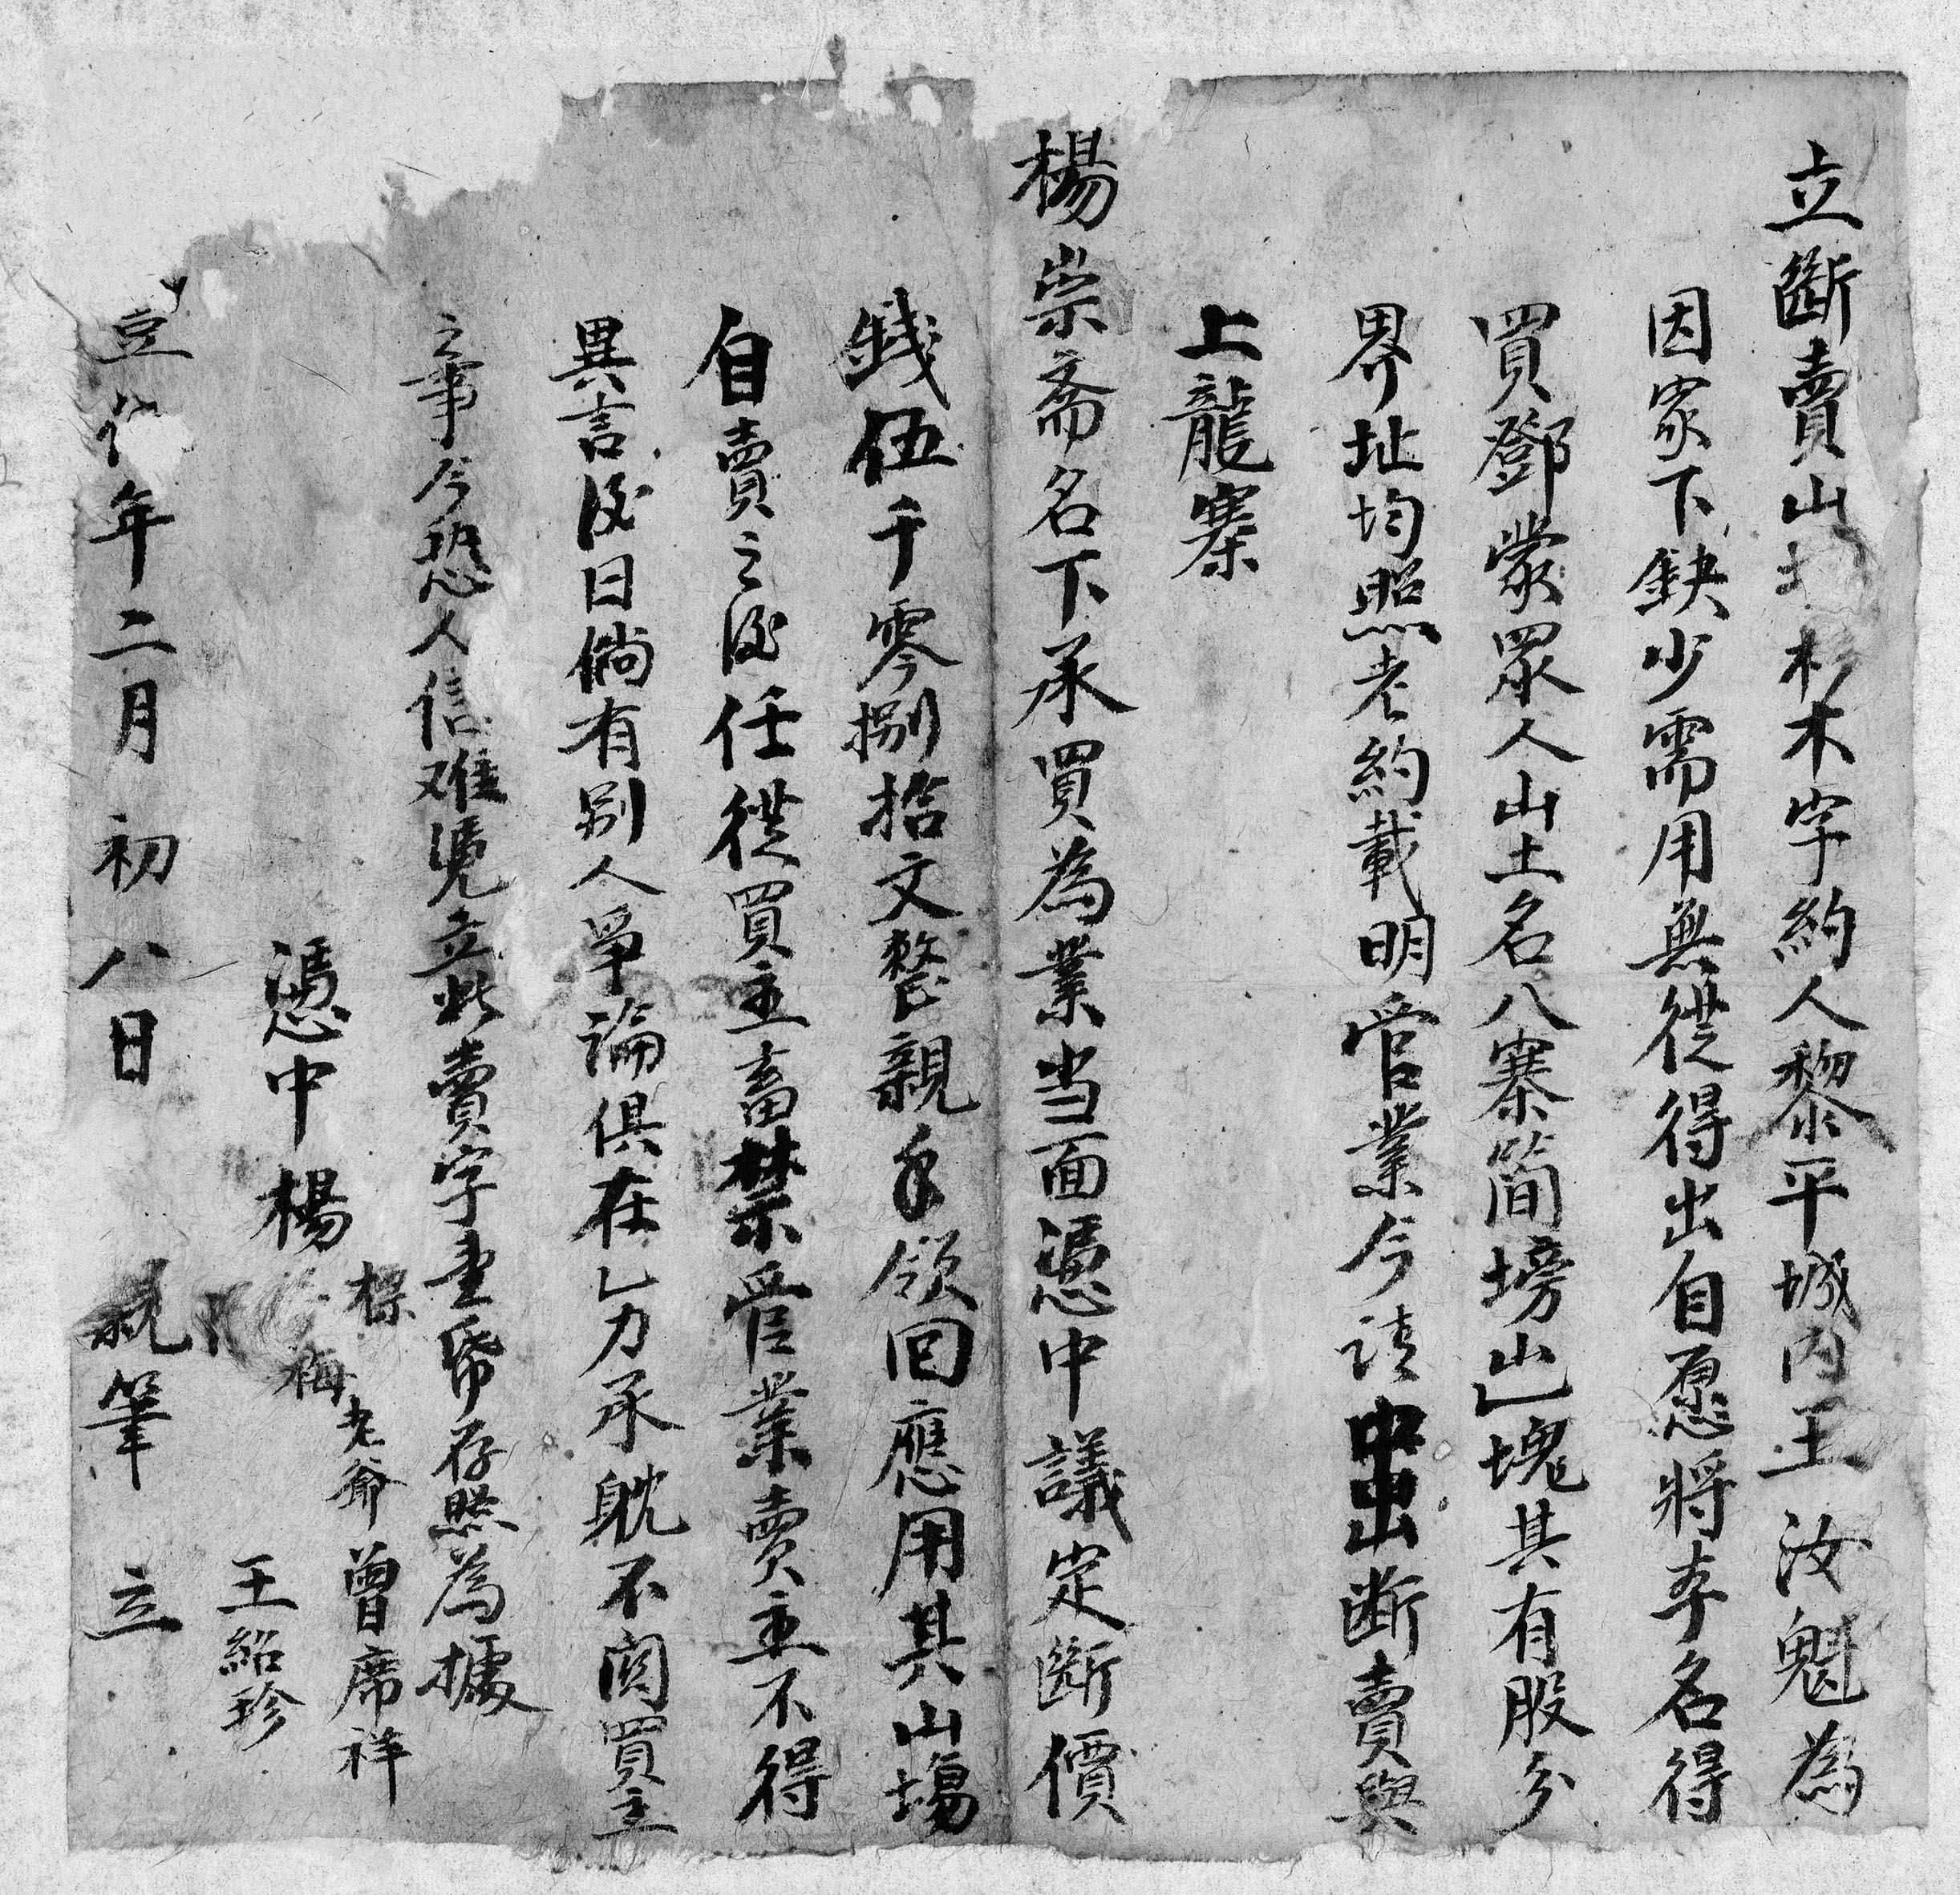 立斷賣山杉木字約人黎平城内王汝魁為
因家下缺少需用無從得出自愿將本名得
買鄧蒙眾人山土名八寨簡塝山乚塊其有股分
界址均照老約載明管業今請中出断賣與
上龍寨
楊崇斋名下承買為業当面憑中議定斷價
錢伍千零捌拾文整親手領回應用其山塲
自賣之後任從買主畜禁管業賣主不得
異言後日倘有别人爭論俱在乚力承躭不関買主
之事今恐人信难凴立此賣字壹帋存照為據
憑中楊
標
梅
老爺
曾席祥
王紹珍
年二月初八日親筆立